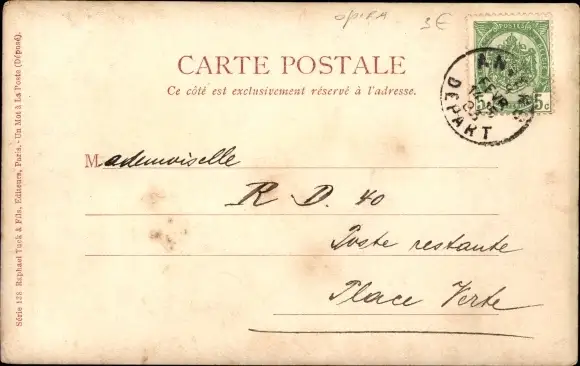 opifA 3€
CARTE POSTALE
Ce côté est exclusivement réservé à l'adresse.
Mademoiselle
R D. 40
Poste restante
Place Verte
Série 138 Raphael Tuck & Fils, Editeurs, Paris. - Un Mot à La Poste (Déposé).
POSTES
5 5c
AN
FEVR
DEPART